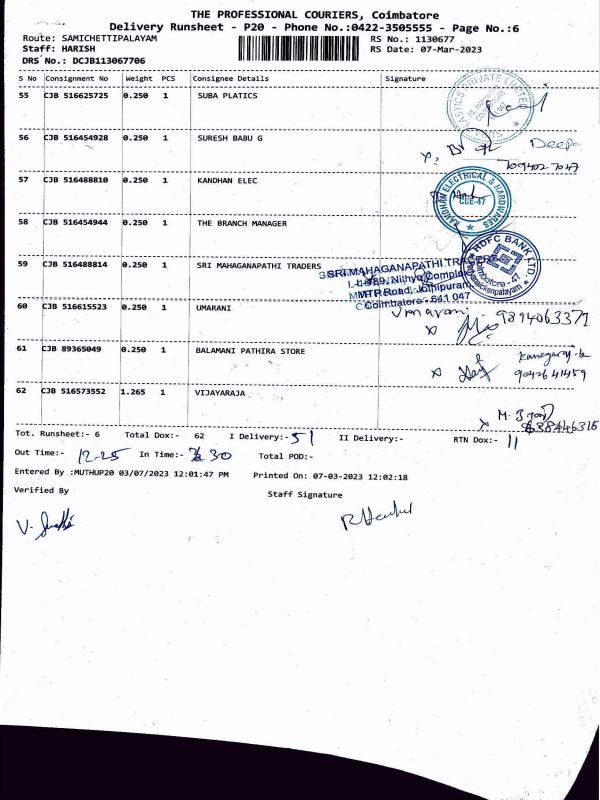 THE PROFESSIONAL COURIERS, Coimbatore
Delivery Runsheet - P20 - Phone No.:0422-3505555 - Page No.:6
Route: SAMICHETTIPALAYAM RS No.: 1130677
Staff: HARISH RS Date: 07-Mar-2023
DRS No.: DCJB113067706
S No Consignment No Weight PCS Consignee Details Signature
55 CJB 516625725 0.250 1 SUBA PLATICS
56 CJB 516454928 0.250 1 SURESH BABU G
Deepa
709402 7047
57 CJB 516488810 0.250 1 KANDHAN ELEC
KANDHAN ELECTRICAL & HARDWARES
CBE-47
58 CJB 516454944 0.250 1 THE BRANCH MANAGER
HDFC BANK LTD.
Coimbatore - 47
59 CJB 516488814 0.250 1 SRI MAHAGANAPATHI TRADERS
SRI MAHAGANAPATHI TRADERS
Nithya Complex
MTP Road, Jothipuram,
Coimbatore - 641 047
60 CJB 516615523 0.250 1 UMARANI
Umarani 9894063371
61 CJB 89365049 0.250 1 BALAMANI PATHIRA STORE
9042641459
62 CJB 516573552 1.265 1 VIJAYARAJA
Tot. Runsheet:- 6 Total Dox:- 62 I Delivery:- 51 II Delivery:- RTN Dox:- 11
Out Time:- 12-25 In Time:- 30 Total POD:-
Entered By :MUTHUP20 03/07/2023 12:01:47 PM Printed On: 07-03-2023 12:02:18
Verified By Staff Signature